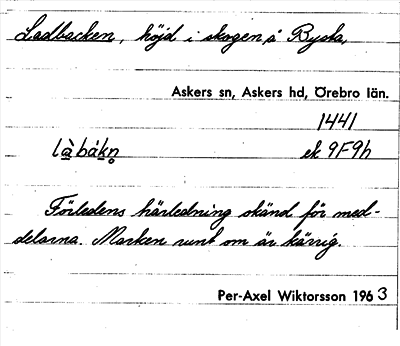 Ladbacken, höjd i skogen, å Bysta,
Askers sn, Askers hd, Örebro län.
1441
là̱bákn̥ ek 9F9h
Förledens härledning okänd för med-
delarna. Marken runt om är kärrig.
Per-Axel Wiktorsson 1963